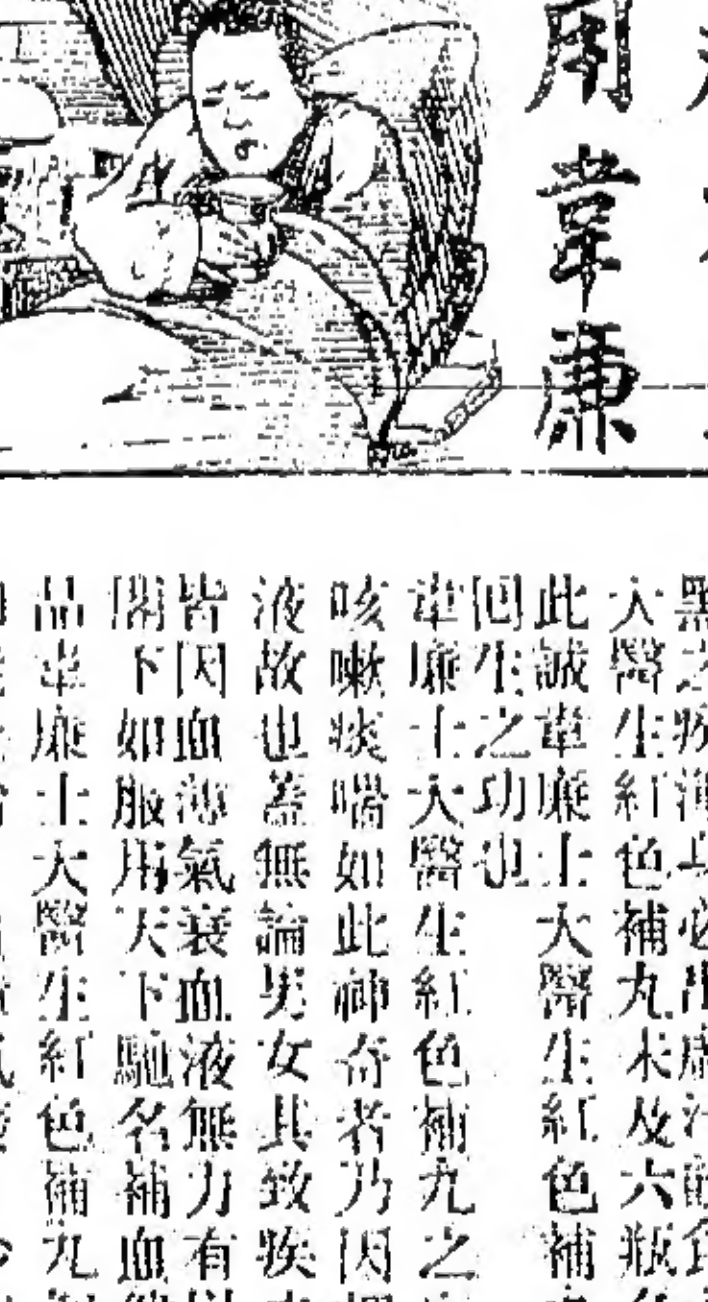 用韋廉
大醫生紅色補丸未及六瓶
此誠韋廉士大醫生紅色補
回生之功也
韋廉士大醫生紅色補丸之
咳嗽痰喘如此神奇者乃因
液故也蓋無論男女其致疾
皆因血薄氣衰血液無力有
閣下如服用天下馳名補血
品韋廉士大醫生紅色補丸